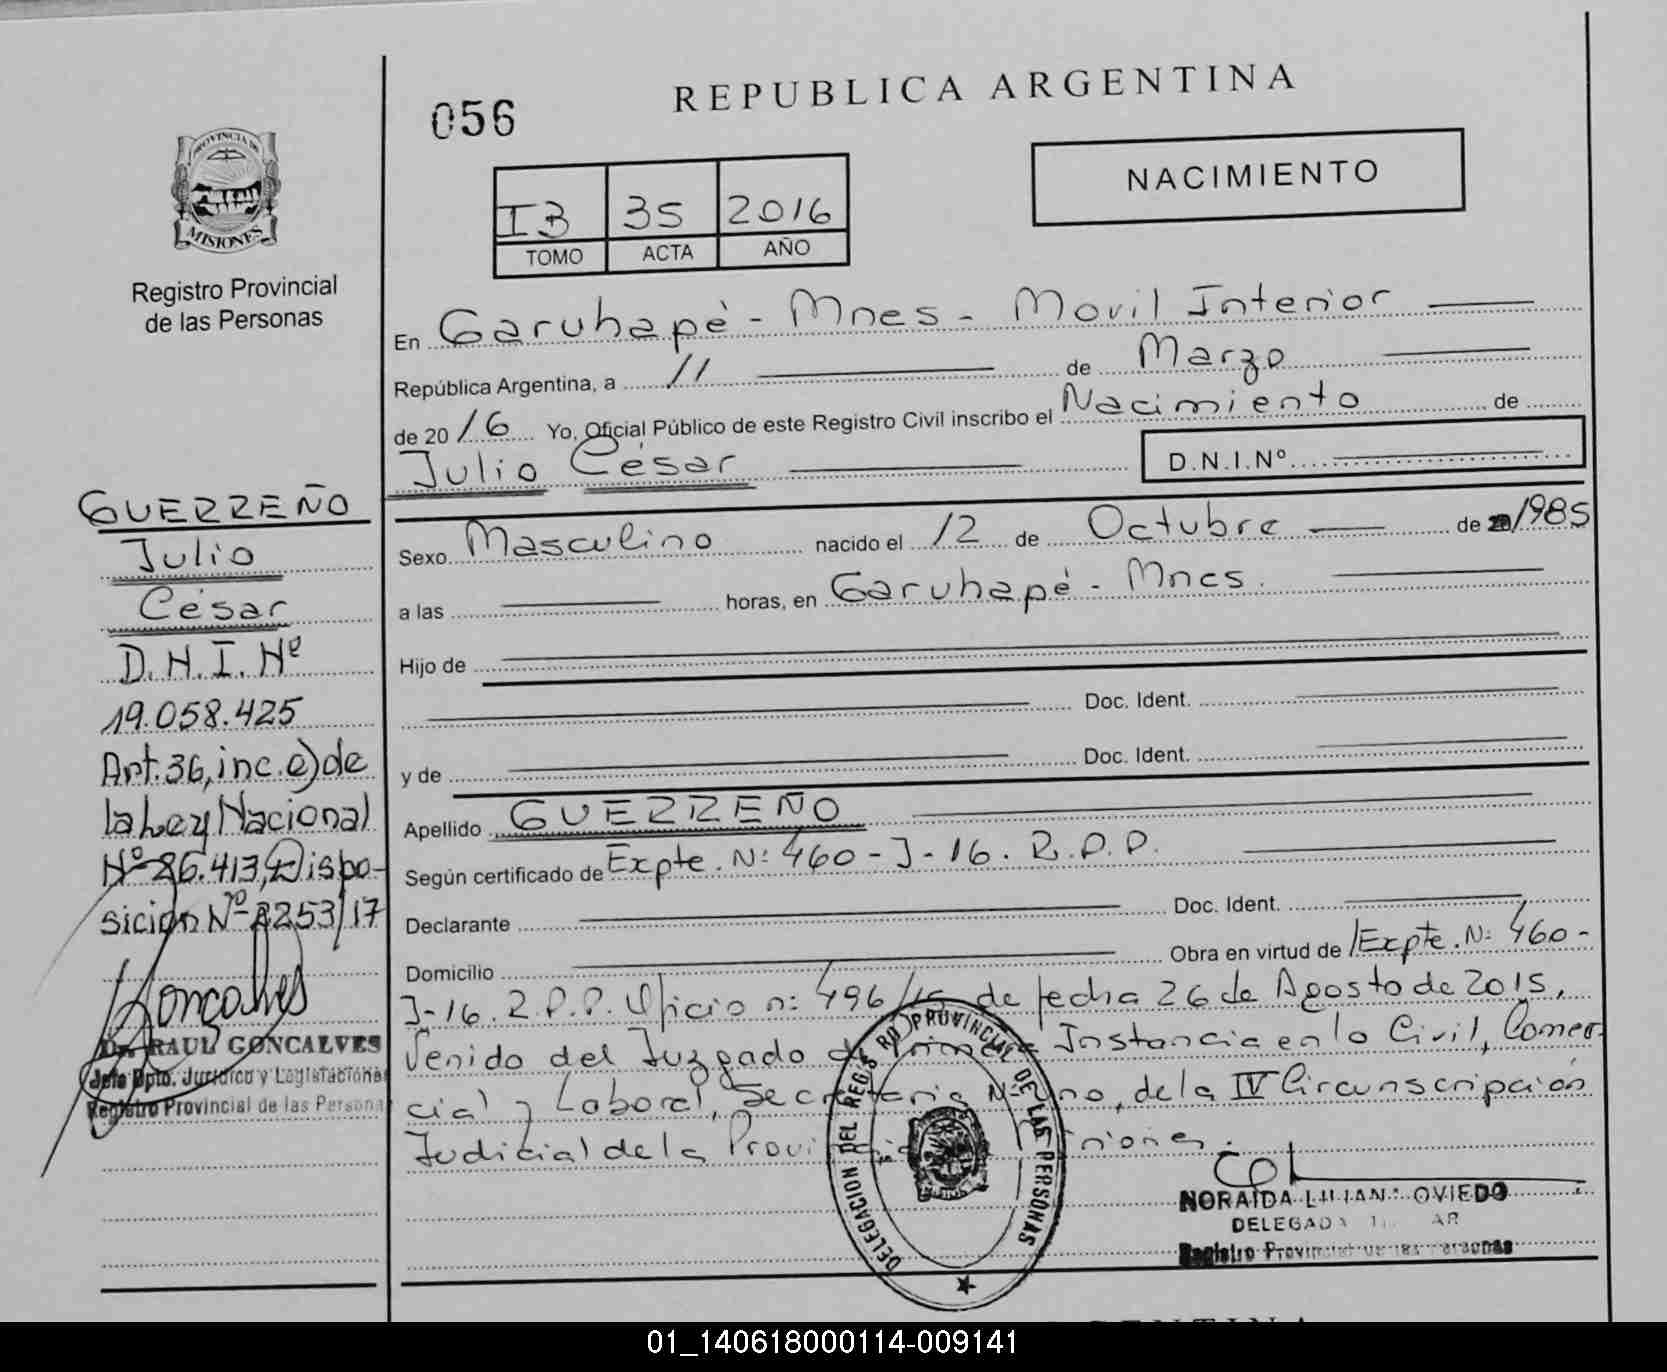 REPUBLICA ARGENTINA
056
NACIMIENTO
PROVINCIA DE
MISIONES
Registro Provincial
de las Personas
I3 35 2016
TOMO ACTA AÑO
En Garuhapé - Mnes - Movil Interior
República Argentina, a 11 de Marzo
de 2016 Yo, Oficial Público de este Registro Civil inscribo el Nacimiento de
Julio César D.N.I.Nº
Sexo Masculino nacido el 12 de Octubre de 1985
a las horas, en Garuhapé - Mnes.
Hijo de
Doc. Ident.
y de Doc. Ident.
Apellido GUERREÑO
Según certificado de Expte. N: 460 - J - 16. R.P.P.
Declarante Doc. Ident.
Domicilio Obra en virtud de Expte. N: 460 -
J-16. R.P.P. Oficio n: 496/15 de fecha 26 de Agosto de 2015,
Venido del Juzgado de Primera Instancia en lo Civil, Comer-
cial y Laboral, Secretaria Nº Uno, de la IV Circunscripción
Judicial de la Provincia de Misiones.
GUERREÑO
Julio
César
D.N.I. Nº
19.058.425
Art. 36, inc. e) de
la Ley Nacional
Nº 26.413, Dispo-
sición Nº 2253/17
Goncalves
Dr. RAUL GONCALVES
Jefe Dpto. Jurídico y Legislaciona
Registro Provincial de las Persona
DELEGACION DEL REGISTRO PROVINCIAL DE LAS PERSONAS
NORAIDA LILIANA OVIEDO
DELEGADA
Registro Provincial de las Personas
01_140618000114-009141